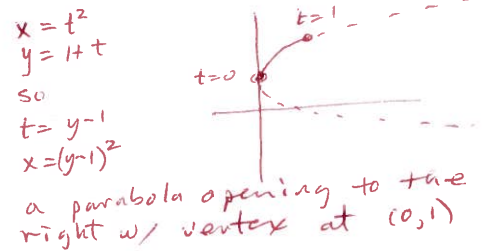 x = t²
y = 1+t
so
t = y-1
x = (y-1)²
t=1
t=0
a parabola opening to the
right w/ vertex at (0,1)